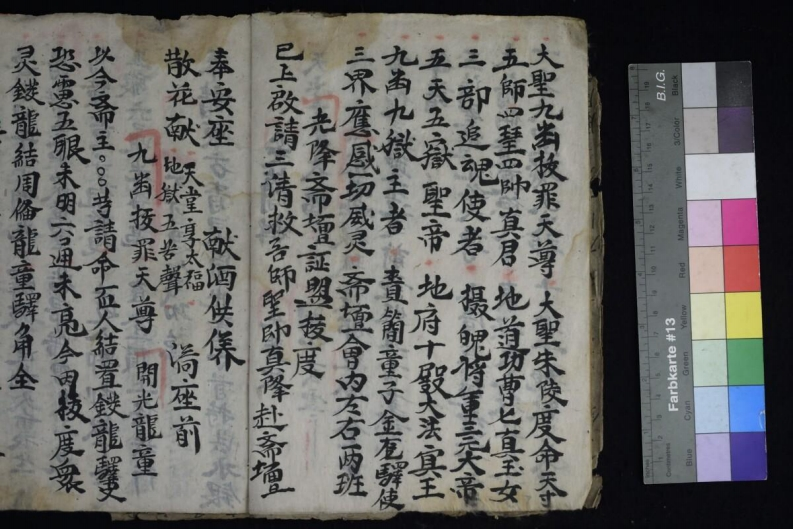 大聖九幽拔罪天尊 大聖朱陵度命天尊
五師四聖四帥真君 地道功曹七真玉女
三部追魂使者 攝魄將軍三元大帝
五天五嶽聖帝 地府十殿大法冥王
九幽九獄主者 賫簡童子金龙驛使
三界應感一切威灵 斋壇會内左右兩班
光降斋壇証盟拔度
已上啟請三清救苦師聖帥真降赴斋壇
奉安座 献酒供养
散花献
天堂享太福
地獄五苦聲
九幽拔罪天尊 満座前
開光龍童
以今斋主。。当請命 人結置鍐龍驛吏
恐慮五眼未明六通未亮今因拔度衆
灵鍐龍結周俻龍童驛角全
B.I.G.
Farbkarte #13
Blue
Cyan
Green
Yellow
Red
Magenta
White
3/Color
Black